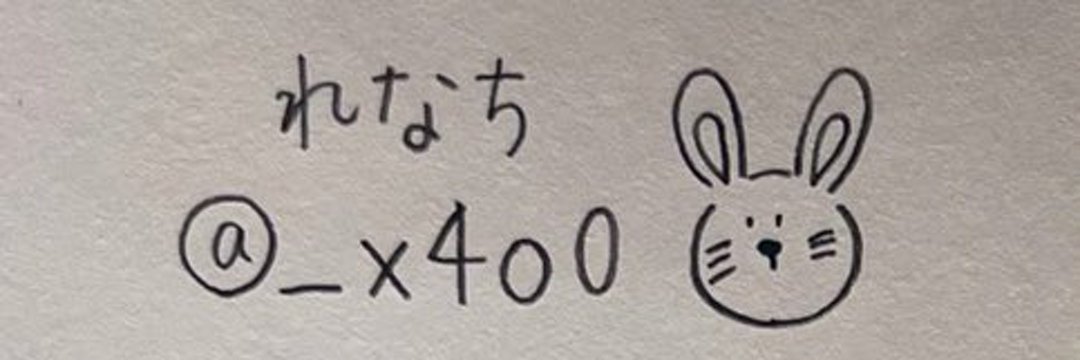 れなち
@_x4o0